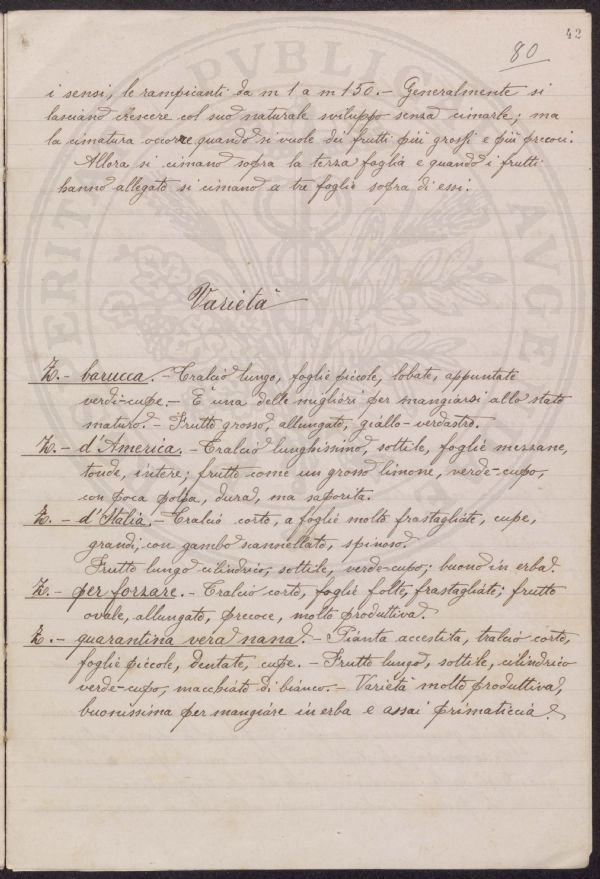 42
80
i sensi, le rampicanti da m 1 a m 1 50.- Generalmente si
lasciano crescere col suo naturale sviluppo senza cimarle; ma
la cimatura occorre quando si vuole dei frutti più grossi e più precoci.
Allora si cimano sopra la terza foglia e quando i frutti
hanno allegato si cimano a tre foglie sopra di essi.
Varietà
Z.- barucca.- Tralcio lungo, foglie piccole, lobate, appuntate
verdi-cupe.- È una delle migliori per mangiarsi allo stato
maturo.- Frutto grosso, allungato, giallo-verdastro.
Z.- d'America.- Tralcio lunghissimo, sottile, foglie mezzane,
tonde, intere; frutto come un grosso limone, verde-cupo,
con poca polpa, dura, ma saporita.
Z.- d'Italia.- Tralcio corto, a foglie molto frastagliate, cupe,
grandi, con gambo scannellato, spinoso.
Frutto lungo cilindrico, sottile, verde-cupo; buono in erba.
Z.- per forzare.- Tralcio corto, foglie folte, frastagliate; frutto
ovale, allungato, precoce, molto produttiva.
Z.- quarantina vera nana.- Pianta accestita, tralcio corto,
foglie piccole, dentate, cupe.- Frutto lungo, sottile, cilindrico
verde-cupo, macchiato di bianco.- Varietà molto produttiva,
buonissima per mangiare in erba e assai primaticcia.